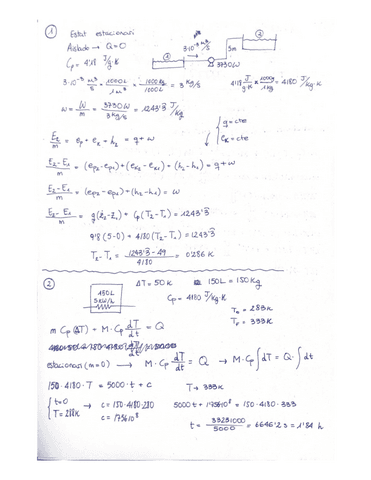 ①
Estat estacionari
Aïllado → Q=0
Cp = 4'18 J/g·K
3·10⁻³ m³/s
5m
3730W
3·10⁻³ m³/s · 1000L/1m³ · 1000Kg/1000L = 3 Kg/s
4'18 J/g·K · 1000g/1Kg = 4180 J/Kg·K
w = W/m = 3730W/3 Kg/s = 1243'3 J/Kg
E₂/m = ep + ek + h₂ = q + w
g = cte
ek = cte
E₂-E₁/m = (ep₂-ep₁) + (ek₂-ek₁) + (h₂-h₁) = q + w
E₂-E₁/m = (ep₂-ep₁) + (h₂-h₁) = w
E₂-E₁/m = g(z₂-z₁) + Cp(T₂-T₁) = 1243'3
9'8 (5-0) + 4180 (T₂-T₁) = 1243'3
T₂-T₁ = 1243'3 - 49/4180 = 0'286 K
②
150L
5KW/h
ΔT = 50K
150L = 150Kg
Cp = 4180 J/Kg·K
T₀ = 283K
T_f = 333K
m Cp (ΔT) + M·Cp dT/dt = Q
estacionari (m=0) → M·Cp dT/dt = Q → M·Cp ∫dT = Q·∫dt
150·4180·T = 5000·t + c
T → 333K
t=0
T=288K
→ c = 150·4180·280
c = 1'756·10⁸
5000t + 1'756·10⁸ = 150·4180·333
t = 33231000/5000 = 6646'2 s = 1'84 h